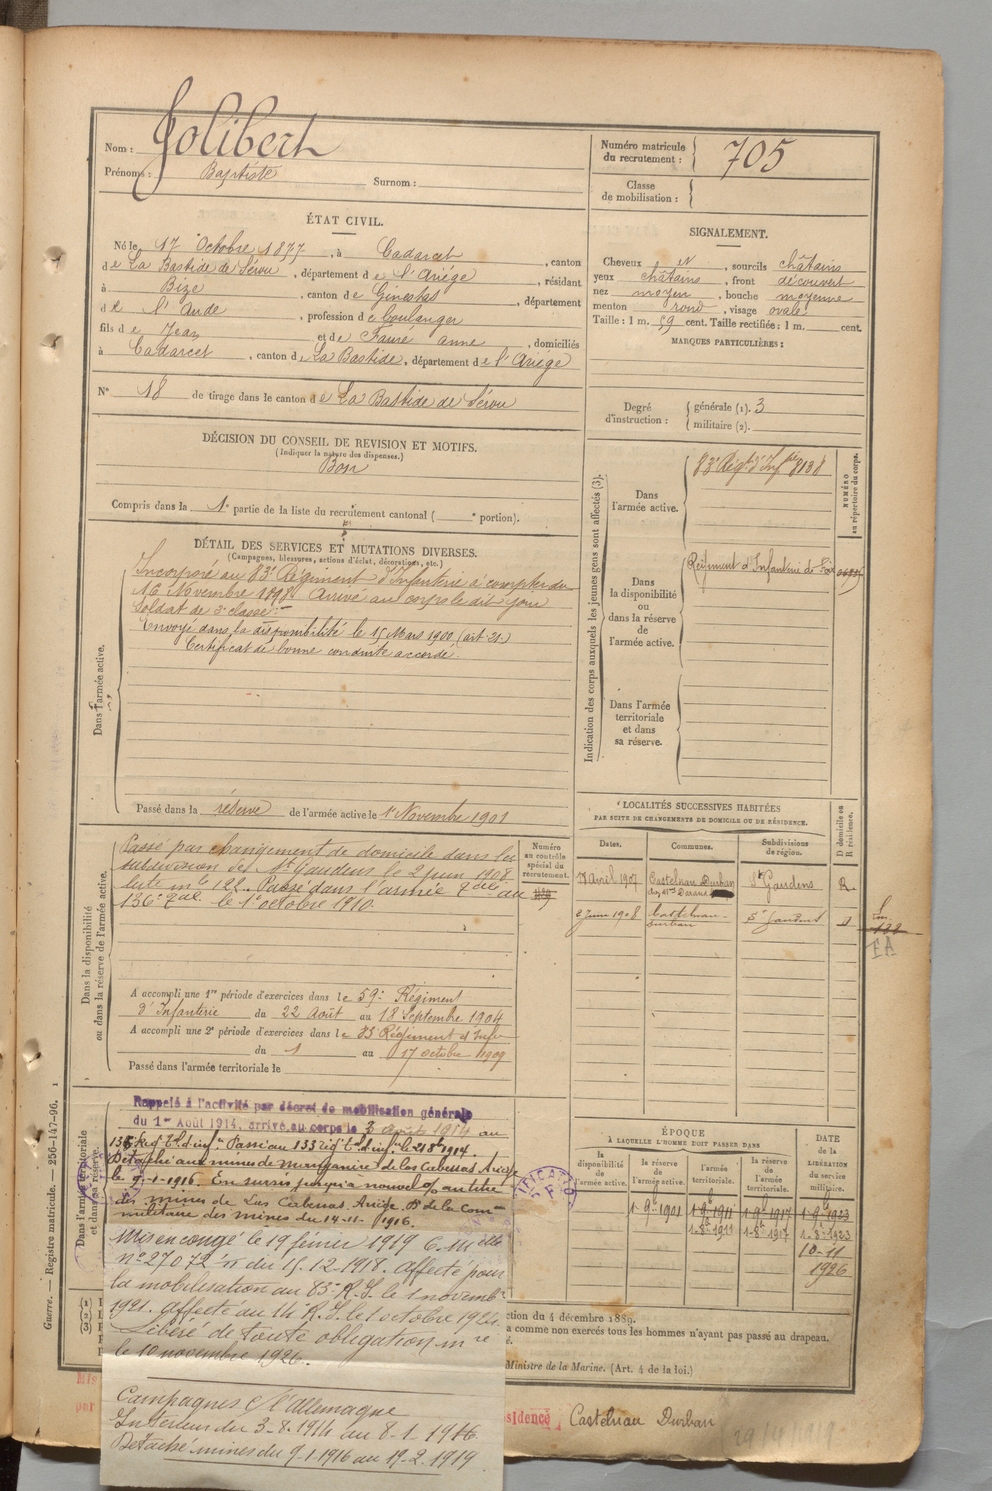 Nom : Jolibert
Prénoms : Baptiste Surnom :
Numéro matricule
du recrutement : 705
Classe
de mobilisation :
ÉTAT CIVIL.
Né le 17 Octobre 1877, à Cadarcet, canton
de La Bastide de Sérou, département de l'Ariége, résidant
à Bize, canton de Ginestas, département
de l'Aude, profession de boulanger
fils de Jean et de Fauré anne, domiciliés
à Cadarcet, canton de La Bastide, département de l'Ariége
N° 18 de tirage dans le canton de La Bastide de Sérou
SIGNALEMENT.
Cheveux N, sourcils châtains
yeux châtains, front découvert
nez moyen, bouche moyenne
menton rond, visage ovale
Taille : 1 m. 59 cent. Taille rectifiée : 1 m. cent.
MARQUES PARTICULIÈRES :
Degré
d'instruction :
générale (1). 3
militaire (2).
DÉCISION DU CONSEIL DE REVISION ET MOTIFS.
(Indiquer la nature des dispenses.)
Bon
Compris dans la 1e partie de la liste du recrutement cantonal ( e portion).
DÉTAIL DES SERVICES ET MUTATIONS DIVERSES.
(Campagnes, blessures, actions d'éclat, décorations, etc.)
Dans l'armée active.
Incorporé au 83e Régiment d'Infanterie à compter du
16 Novembre 1898. Arrivé au corps le dit jour
Soldat de 2e classe
Envoyé dans la disponibilité le 15 Mars 1900 (art. 21.)
Certificat de bonne conduite accordé.
Passé dans la réserve de l'armée active le 1er Novembre 1901
Indication des corps auxquels les jeunes gens sont affectés (3).
NUMÉRO
au répertoire du corps.
Dans
l'armée active.
83e Régt d'Infrie 8138
Dans
la disponibilité
ou
dans la réserve
de
l'armée active.
Régiment d'Infanterie de Foix
Dans l'armée
territoriale
et dans
sa réserve.
Dans la disponibilité
ou dans la réserve de l'armée active.
Passé par changement de domicile dans la
subdivision de St Gaudens le 2 juin 1908
liste mle 122. Passé dans l'armée tale au
136e tal. le 1er octobre 1910.
Numéro
au contrôle
spécial du
recrutement.
A accompli une 1re période d'exercices dans le 59e Régiment
d'Infanterie du 22 Août au 18 Septembre 1904
A accompli une 2e période d'exercices dans le 83e Régiment d'Infie
du 1 au 17 octobre 1909
Passé dans l'armée territoriale le
LOCALITÉS SUCCESSIVES HABITÉES
PAR SUITE DE CHANGEMENTS DE DOMICILE OU DE RÉSIDENCE.
D domicile ou
R résidence.
Dates. Communes. Subdivisions
de région.
7 Avril 1907 Castelnau Durban St Gaudens R.
2 juin 1908 Castelnau-
Durban St Gaudens D
EA
Dans l'armée territoriale
et dans sa réserve.
Rappelé à l'activité par décret de mobilisation générale
du 1er Août 1914, arrivé au corps le 3 août 1914 au
136 Reg Tal d'infie Passé au 133 reg Tal d'infie le 21 8bre 1914.
Détaché aux mines de manganèse de las Cabessas Ariège
le 9-1-1916. En sursis jusqu'à nouvel o/ au titre
des mines de Las Cabessas Ariège. D on de la Com-
militaire des mines du 14-11-1916.
Mis en congé le 19 février 1919 C. Mielle
n° 27072 n du 15.12.1918. Affecté pour
la mobilisation au 83e R.I. le 1 novembre
1921. Affecté au 14 R.I. le 1 octobre 1924.
Libéré de toute obligation mre
le 10 novembre 1926.
Campagnes c/ l'allemagne
Intérieur du 3-8-1914 au 8-1-1916
Détaché mines du 9-1-1916 au 19-2-1919
ÉPOQUE
À LAQUELLE L'HOMME DOIT PASSER DANS
la
disponibilité
de
l'armée active.
la
réserve de
l'armée active.
l'armée
territoriale.
la
réserve de
l'armée
territoriale.
DATE
DE LA
LIBÉRATION
du service
militaire.
1-9bre 1901 1-9bre 1911 1-9bre 1917 1-9-1923
1-8bre 1911 1-8bre 1917 1-8bre 1923
10-11
1926
ction du 4 décembre 1889.
a comme non exercés tous les hommes n'ayant pas passé au drapeau.
Ministre de la Marine. (Art. 4 de la loi.)
(1)
(2)
(3)
Mis
par
sidence Castelnau Durban
Guerre. — Registre matricule. — 256-147-96.